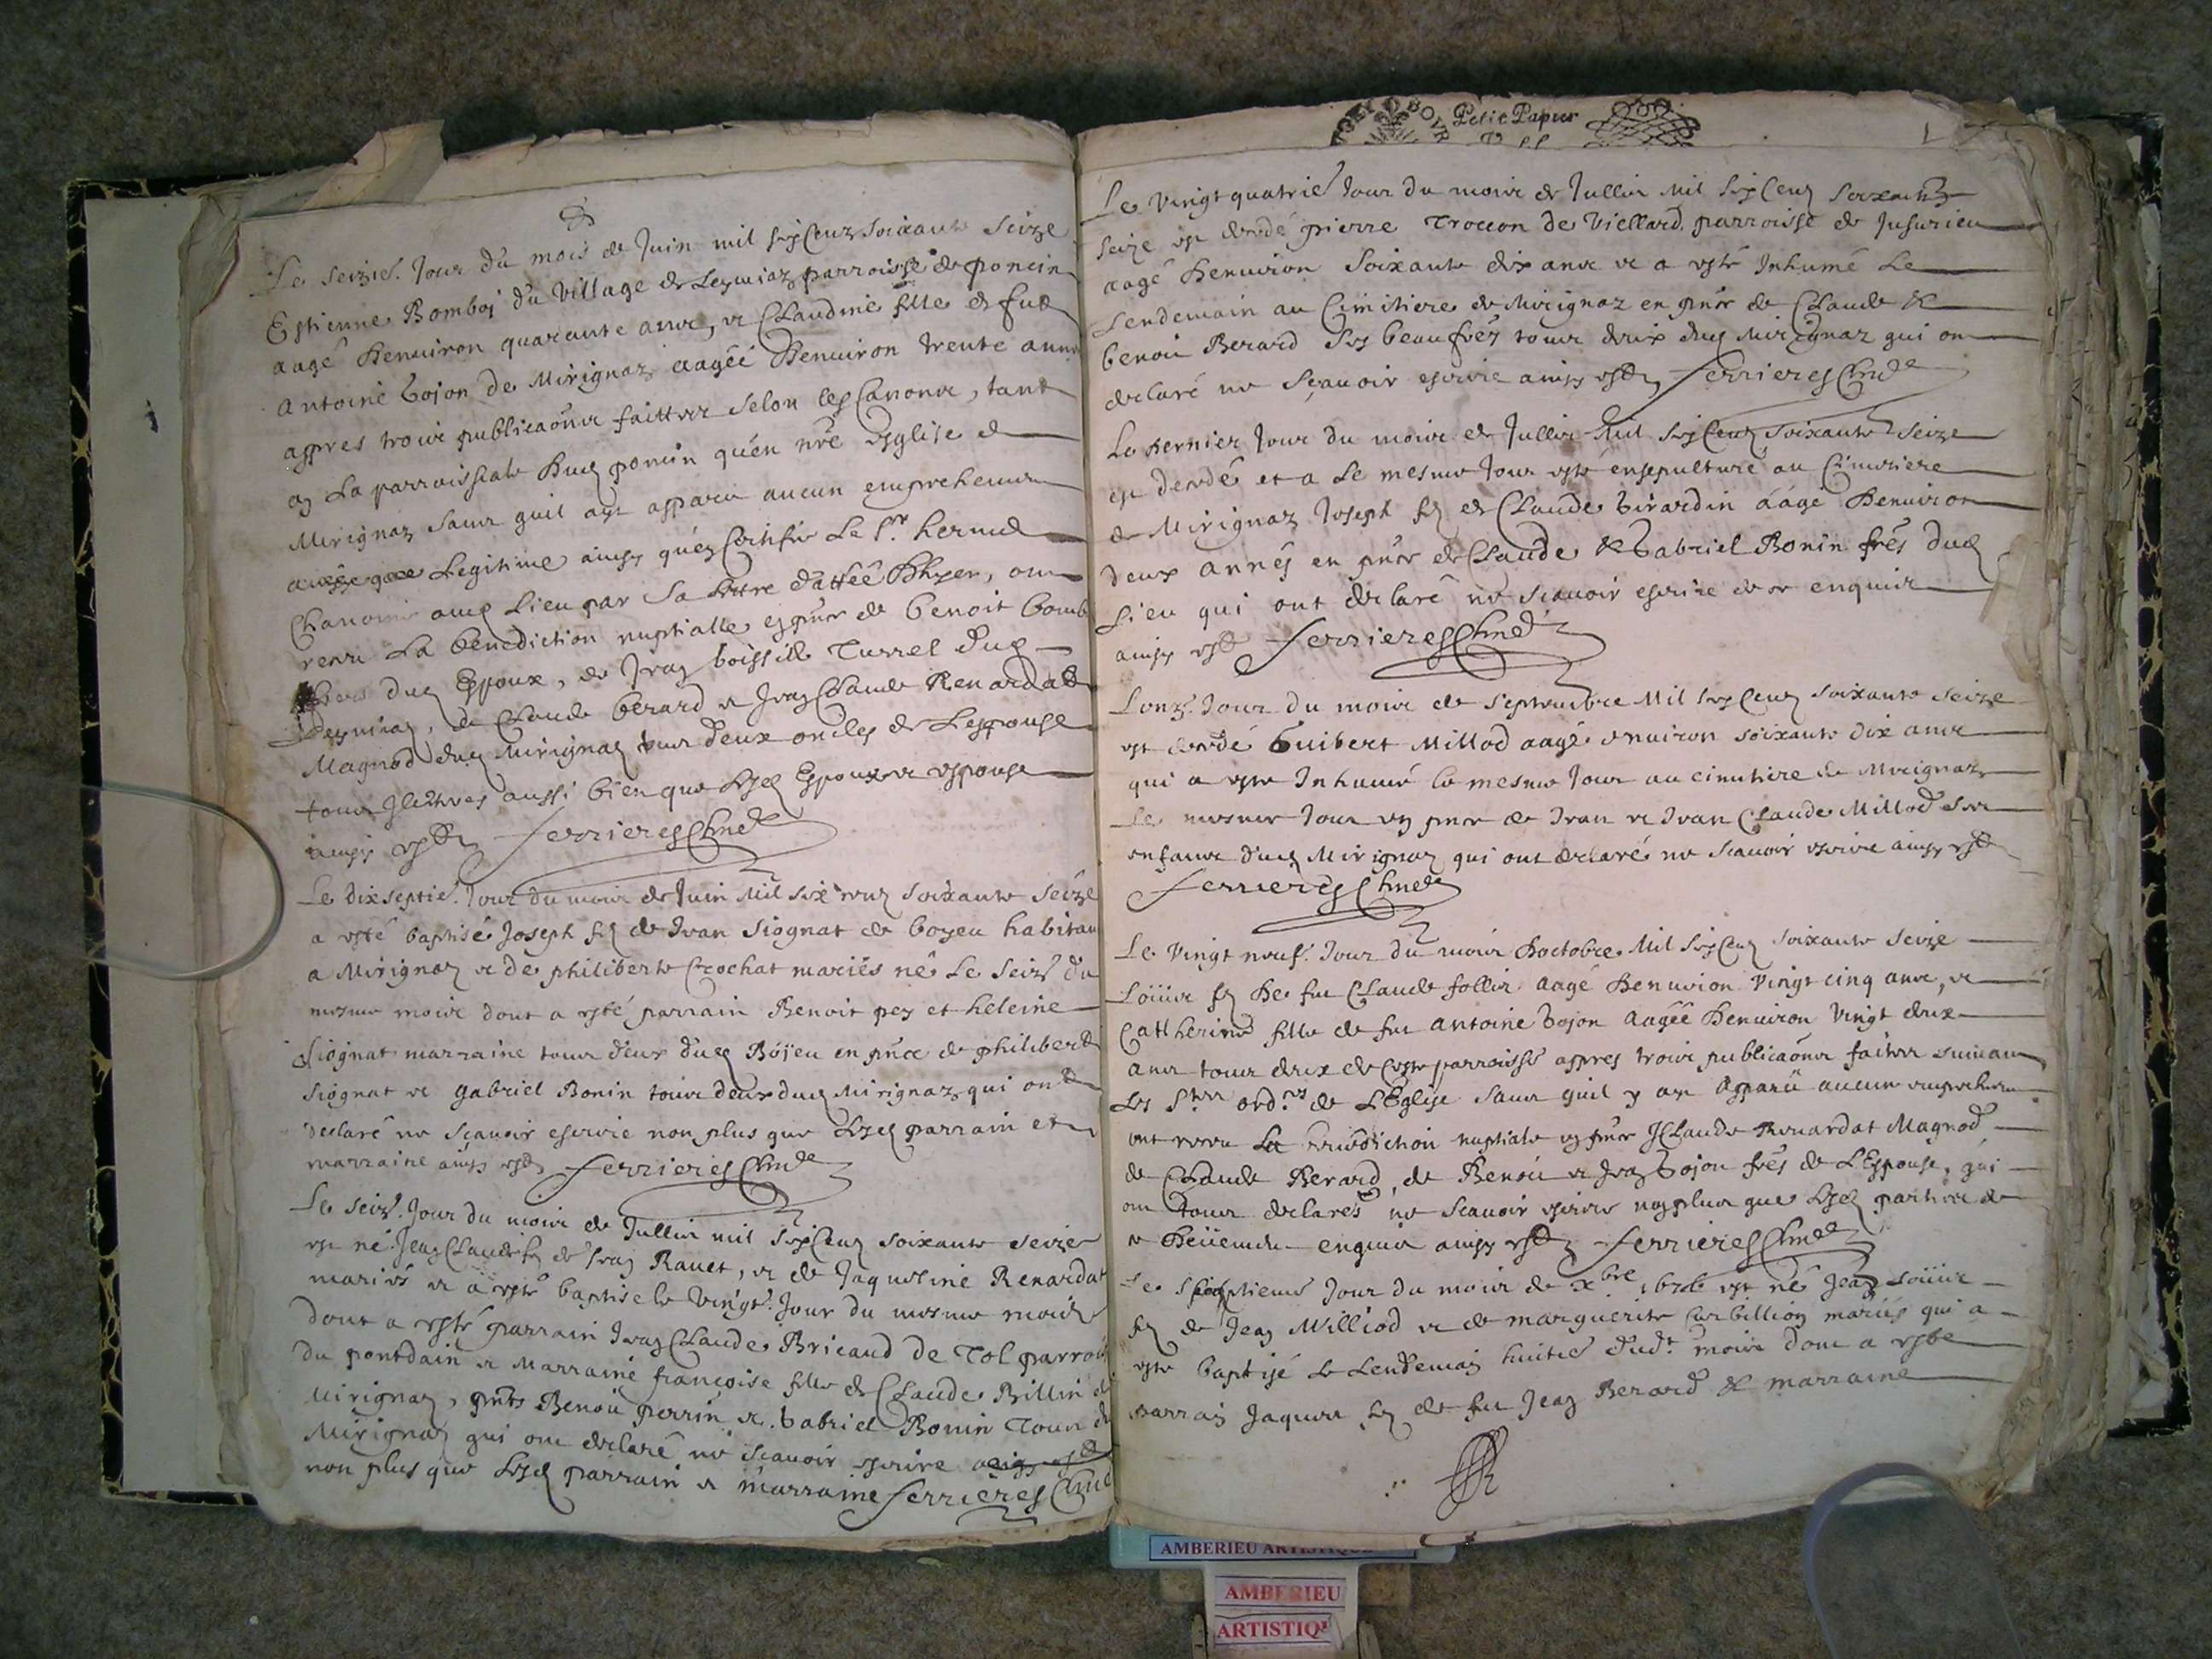 Le seizie. Jour du mois de Juin mil six Centz soixante seize
Estienne Bomboj du Village de Leymiaz parroisse de poncin
aagé Denuiron quarante ans, et Claudine fille de fut
Antoine Gojon de Mirignaz aagéé Denuiron trente ann
appres trois publicaõns faittes selon les Canons, tant
en La parroissiale Dud poncin qu'en nre esglise de
Mirignaz sans quil ayt apparu aucun empechemen
Legitime ainsy qu'en Certifie Le Sr.
Chanoine aud Lieu par sa lettre d'attéé Dhyer, ont
receu La benediction nuptialle en pnce de benoit bomb
dud Espoux, de Jean boissille Turrel dud
Leymiaz, de Claude berard et Jean Claude Renardat
Magnod dud Mirignaz tous deux oncles de Lespouse
tous Illetres aussi bien que Lesd Espoux et espouse
ainsy est Ferrieres Cure
Le dixseptie. Jour du mois de Juin Mil six centz soixante seize
a esté baptisé Joseph fz de Jean Siognat de boyeu habitan
a Mirignaz et de philiberte Crochat mariés né Le seize du
mesme mois dont a esté parrain Benoit pey et heleine
Siognat marraine tous deux dud Boyeu en pnce de philibert
Siognat et gabriel Bonin tous deux dud Mirignaz qui ont
declaré ne sçauoir escrire non plus que Lesd parrain et
marraine ainsy est Ferrieres Cure
Le seize. Jour du mois de Jullin mil six Centz soixante seize
est né Jean Claude fz de Jean Rauet, et de Jaqueline Renardat
mariés et a esté baptisé le Vingt. Jour du mesme mois
dont a esté parrain Jean Claude Bricaud de Tol parrois
du pontdain et Marraine françoise fille de Claude Billin de
Mirignaz, pnts Benoit perrin et Gabriel Bonin Tous de
Mirignaz qui ont declaré ne scauoir escrire ainsy est
non plus que Lesd parrain et marraine Ferrieres Cure
Petit Papier
Le Vingt quatrie Jour du mois de Jullin Mil six Centz soixante
seize est decedé pierre Trocon de Viellard parroisse de Jusurieu
aagé Denuiron soixante dix ans et a esté Inhumé Le
Lendemain au Cimitiere de Mirignaz en pnce de Claude &
benoit Berard ses beaufrés tous deux dud Mirignaz qui ont
declaré ne sçauoir escrire ainsy est Ferrieres Cure
Le dernier Jour du mois de Jullin Mil six Centz soixante seize
est decedé et a Le mesme Jour esté ensepulturé au Cimitiere
de Mirignaz Joseph fz de Claude Girardin aagé Denuiron
deux annés en pnce de Claude & Gabriel Bonin frés dud
Lieu qui ont declaré ne scauoir escrire de ce enquis
ainsy est Ferrieres Cure
Lonze. Jour du mois de Septembre Mil six Centz soixante seize
est decedé Guibert Millod aagé enuiron soixante dix ans
qui a esté Inhumé le mesme Jour au cimitiere de Mirignaz
Le mesme Jour en pnce de Jean et Jean Claude Millod ses
enfans dud Mirignaz qui ont declaré ne scauoir escrire ainsy est
Ferrieres Cure
Le Vingt neuf. Jour du mois Doctobre Mil six Centz soixante seize
Loüis fz De fu Claude follin aagé Denuiron Vingt cinq ans, et
Catherine fille de fu antoine Gojon aagéé Denuiron Vingt deux
ans tous deux de ceste parroisse appres trois publicaõns faites suiuan
Les Stes ordres de L'Eglise sans quil y aye apparü aucun empechem
ont receu La benediction nuptiale en pnce JClaude Renardat Magnod
de Claude Berard, de Benoit et Jean Gojon frés de L'Espouse, qui
ont tous declarés ne scauoir escrire non plus que Lesd parties de
ce Deüement enquis ainsy est Ferrieres Cure
Le septiieme Jour du mois de xbre 1676 est né Jean Loüis
fz de Jean Milliod et de marguerite Curbillion mariés qui a
esté baptisé Le Lendemain huitie dudt. mois dont a esté
parrain Jaques fz de fu Jean Berard & marraine
AMBERIEU ARTISTIQUE
AMBERIEU
ARTISTIQU